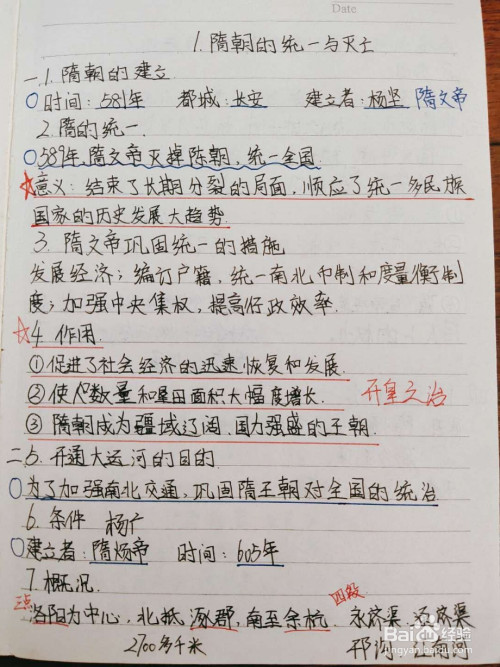 Date
1.隋朝的统一与灭亡
一.1.隋朝的建立
○时间:581年 都城:长安 建立者:杨坚 隋文帝
2.隋的统一.
○589年,隋文帝灭掉陈朝,统一全国.
☆意义:结束了长期分裂的局面,顺应了统一多民族
国家的历史发展大趋势.
3.隋文帝巩固统一的措施
发展经济;编订户籍,统一南北币制和度量衡制
度;加强中央集权,提高行政效率.
☆4.作用.
①促进了社会经济的迅速恢复和发展.
②使人口数量和垦田面积大幅度增长. 开皇之治
③隋朝成为疆域辽阔.国力强盛的王朝.
二5.开通大运河的目的
○为了加强南北交通,巩固隋王朝对全国的统治
6.条件 杨广
○建立者:隋炀帝 时间:605年
7.概况.
三点 四级
洛阳为中心,北抵涿郡,南至余杭. 永济渠.通济渠
2700多千米 邗沟.江南河
Baidu经验